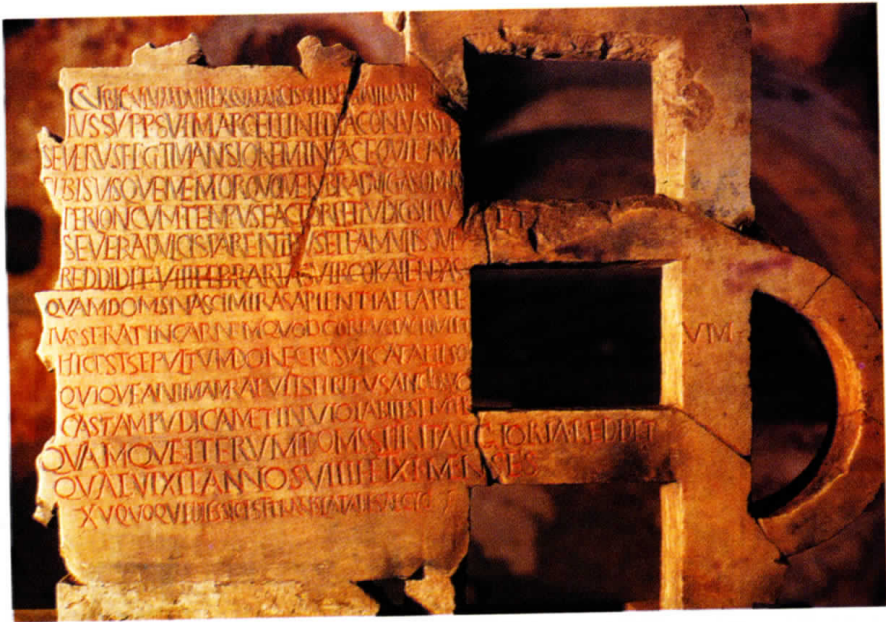 CUBICULUM DUPLEX CUM ARCISOLIIS ET LUMINARE
IUSSU PP SUI MARCELLINI DIACONUS ISTE
SEVERUS FECIT MANSIONEM IN PACE QUIETAM
SIBI SUISQUE MEMOR QUO MEMBRA DULCIA SOMNO
PER LONGUM TEMPUS FACTORI ET IUDICI SERV ET
SEVERA DULCIS PARENTIBUS ET FAMULIS
REDDIDIT VIII FEBRARIAS VIRGO KALENDAS
QUAM DOMS NASCI MIRA SAPIENTIA ET ARTE
IUSSERAT IN CARNEM QUOD CORPUS PACE QUIET UM
HIC EST SEPULTUM DONEC RESURGAT AB IPSO
QUIQUE ANIMAM RAPUIT SPIRITU SANCTO SUO
CASTAM PUDICAM ET INVIOLABILE SEMPER
QUAMQUE ITERUM DOMS SPIRITALI GLORIA REDDET
QUAE VIXIT ANNOS VIIII ET XI MENSES
XV QUOQUE DIES SIC EST TRANSLATA DE SAECLO